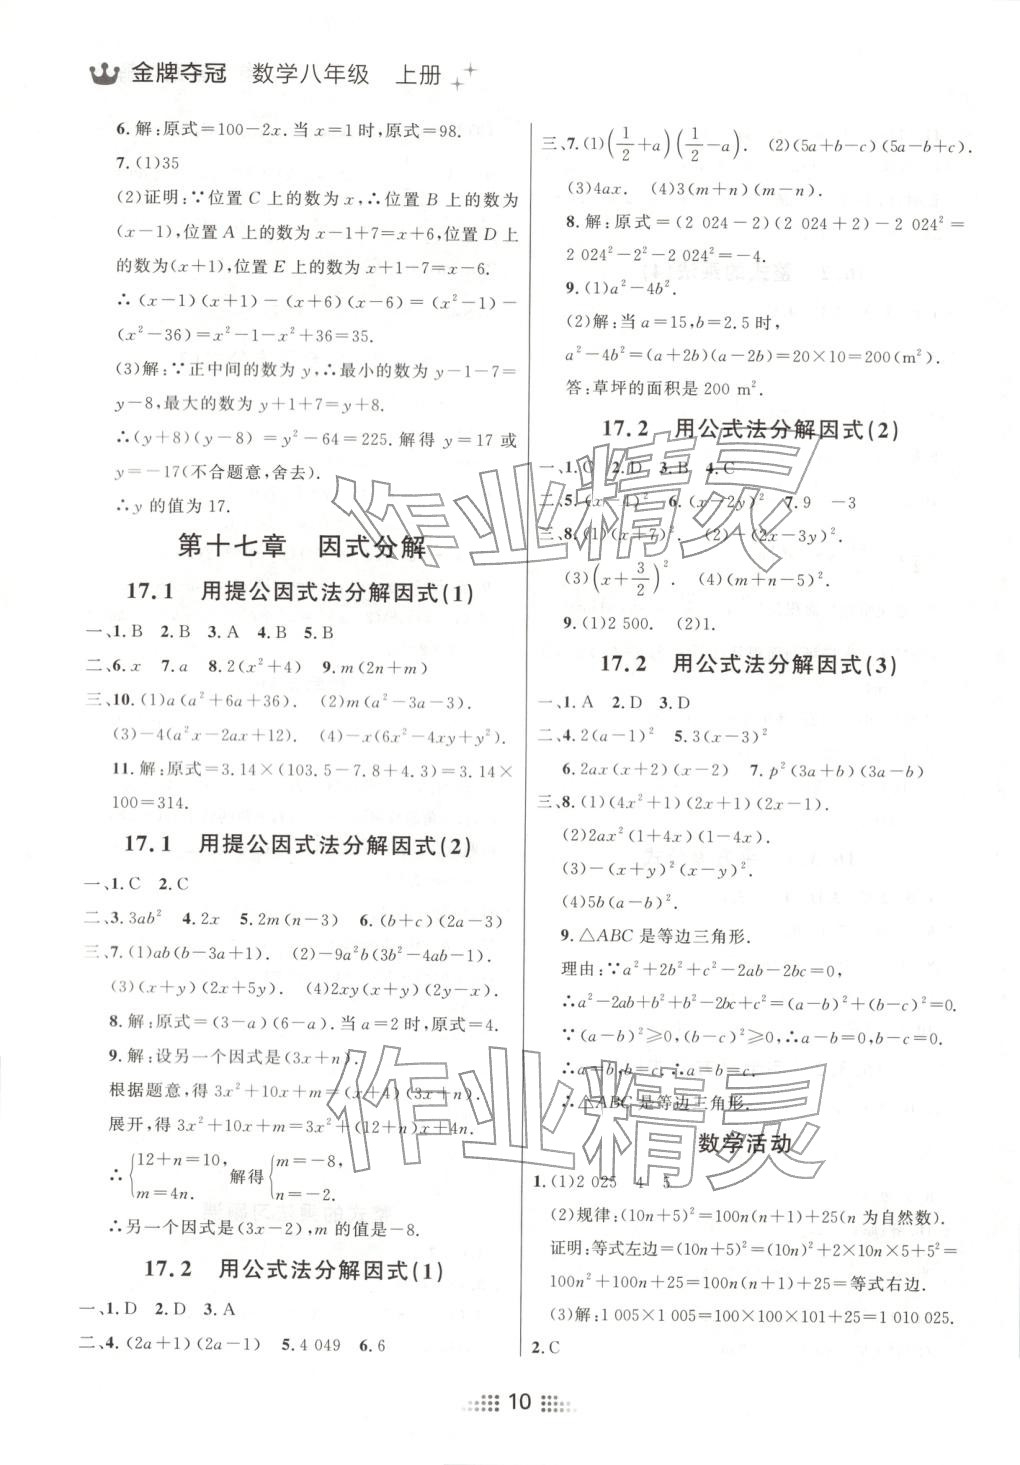 金牌夺冠 数学八年级 上册
6.解:原式=100-2x.当x=1时,原式=98.
7.(1)35
(2)证明:∵位置C上的数为x,∴位置B上的数为
(x-1),位置A上的数为x-1+7=x+6,位置D上
的数为(x+1),位置E上的数为x+1-7=x-6.
∴(x-1)(x+1)-(x+6)(x-6)=(x²-1)-
(x²-36)=x²-1-x²+36=35.
(3)解:∵正中间的数为y,∴最小的数为y-1-7=
y-8,最大的数为y+1+7=y+8.
∴(y+8)(y-8)=y²-64=225.解得y=17或
y=-17(不合题意,舍去).
∴y的值为17.
第十七章 因式分解
17.1 用提公因式法分解因式(1)
一、1.B 2.B 3.A 4.B 5.B
二、6.x 7.a 8.2(x²+4) 9.m(2n+m)
三、10.(1)a(a²+6a+36). (2)m(a²-3a-3).
(3)-4(a²x-2ax+12). (4)-x(6x²-4xy+y²).
11.解:原式=3.14×(103.5-7.8+4.3)=3.14×
100=314.
17.1 用提公因式法分解因式(2)
一、1.C 2.C
二、3.3ab² 4.2x 5.2m(n-3) 6.(b+c)(2a-3)
三、7.(1)ab(b-3a+1). (2)-9a²b(3b²-4ab-1).
(3)(x+y)(2x+5y). (4)2xy(x+y)(2y-x).
8.解:原式=(3-a)(6-a).当a=2时,原式=4.
9.解:设另一个因式是(3x+n).
根据题意,得3x²+10x+m=(x+4)(3x+n).
展开,得3x²+10x+m=3x²+(12+n)x+4n.
∴{12+n=10, m=4n. 解得{m=-8, n=-2.
∴另一个因式是(3x-2),m的值是-8.
17.2 用公式法分解因式(1)
一、1.D 2.D 3.A
二、4.(2a+1)(2a-1) 5.4 049 6.6
三、7.(1)(1/2+a)(1/2-a). (2)(5a+b-c)(5a-b+c).
(3)4ax. (4)3(m+n)(m-n).
8.解:原式=(2 024-2)(2 024+2)-2 024²=
2 024²-2²-2 024²=-4.
9.(1)a²-4b².
(2)解:当a=15,b=2.5时,
a²-4b²=(a+2b)(a-2b)=20×10=200(m²).
答:草坪的面积是200 m².
17.2 用公式法分解因式(2)
一、1.C 2.D 3.B 4.C
二、5.(x-1)² 6.(x-2y)² 7.9 -3
三、8.(1)(x+7)². (2)-(2x-3y)².
(3)(x+3/2)². (4)(m+n-5)².
9.(1)2 500. (2)1.
17.2 用公式法分解因式(3)
一、1.A 2.D 3.D
二、4.2(a-1)² 5.3(x-3)²
6.2ax(x+2)(x-2) 7.p²(3a+b)(3a-b)
三、8.(1)(4x²+1)(2x+1)(2x-1).
(2)2ax²(1+4x)(1-4x).
(3)-(x+y)²(x-y)².
(4)5b(a-b)².
9.△ABC是等边三角形.
理由:∵a²+2b²+c²-2ab-2bc=0,
∴a²-2ab+b²+b²-2bc+c²=(a-b)²+(b-c)²=0.
∵(a-b)²≥0,(b-c)²≥0,∴a-b=0,b-c=0.
∴a=b,b=c,∴a=b=c.
∴△ABC是等边三角形.
数学活动
1.(1)2 025 4 5
(2)规律:(10n+5)²=100n(n+1)+25(n为自然数).
证明:等式左边=(10n+5)²=100n²+2×10n×5+5²=
100n²+100n+25=100n(n+1)+25=等式右边.
(3)解:1 005×1 005=100×100×101+25=1 010 025.
2.C
10
作业精灵
作业精灵